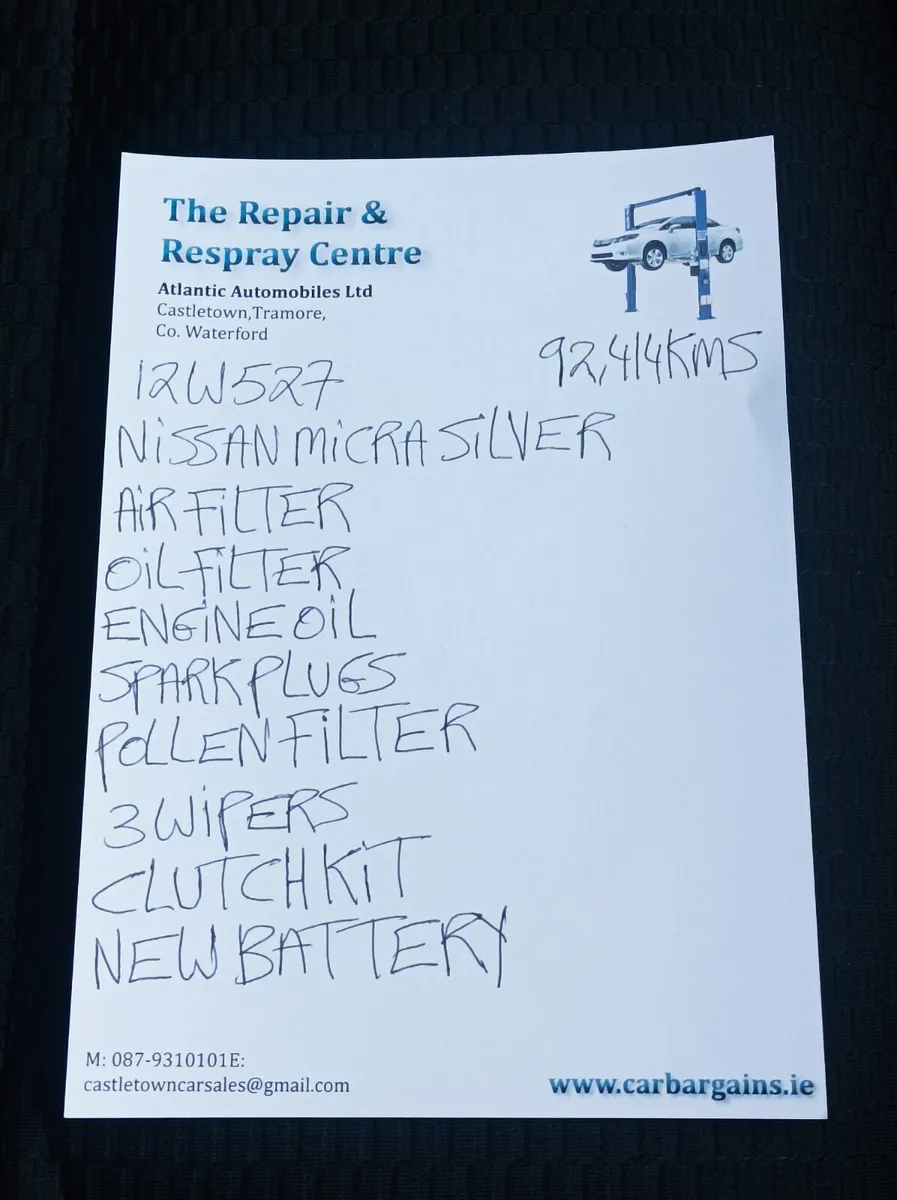 The Repair &
Respray Centre
Atlantic Automobiles Ltd
Castletown,Tramore,
Co. Waterford
92,414KMS
12W527
NiSSAN MiCRA SiLVER
AiR FiLTER
OiL FiLTER
ENGiNE OiL
SPARK PLUGS
POLLEN FiLTER
3 WiPERS
CLUTCH KiT
NEW BATTERY
M: 087-9310101E:
castletowncarsales@gmail.com
www.carbargains.ie